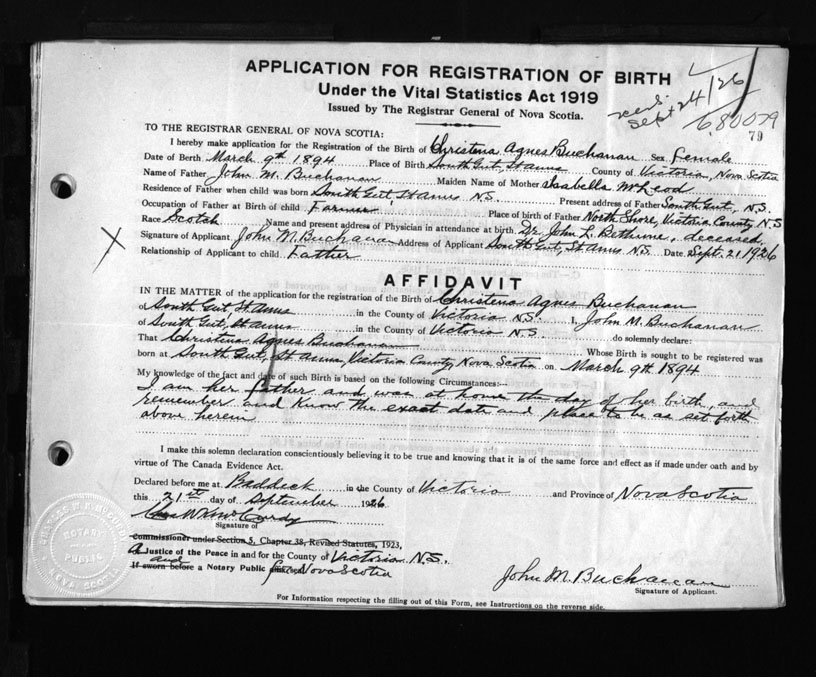 APPLICATION FOR REGISTRATION OF BIRTH
Under the Vital Statistics Act 1919
Issued by The Registrar General of Nova Scotia.
Sept 24/26
680079
79
TO THE REGISTRAR GENERAL OF NOVA SCOTIA:
I hereby make application for the Registration of the Birth of Christena Agnes Buchanan Sex female
Date of Birth March 9th 1894 Place of Birth South Gut, St Anns County of Victoria, Nova Scotia
Name of Father John M. Buchanan Maiden Name of Mother Isabella McLeod
Residence of Father when child was born South Gut, St Anns N.S. Present address of Father South Gut, N.S.
Occupation of Father at Birth of child Farmer Place of birth of Father North Shore, Victoria County N.S
Race Scotch Name and present address of Physician in attendance at birth Dr. John L. Bethune, deceased
Signature of Applicant John M. Buchanan Address of Applicant South Gut, St Anns N.S Date Sept. 21 1926
Relationship of Applicant to child Father
X
AFFIDAVIT
IN THE MATTER of the application for the registration of the Birth of Christena Agnes Buchanan
of South Gut St Anns in the County of Victoria N.S. I, John M. Buchanan
of South Gut, St Anns in the County of Victoria N.S. do solemnly declare:
That Christena Agnes Buchanan Whose Birth is sought to be registered was
born at South Gut, St Anns, Victoria County, Nova Scotia on March 9th 1894
My knowledge of the fact and date of such Birth is based on the following Circumstances:—
I am her father and was at home the day of her birth, and
remember and know the exact date and place to be as set forth
above herein
I make this solemn declaration conscientiously believing it to be true and knowing that it is of the same force and effect as if made under oath and by
virtue of The Canada Evidence Act.
Declared before me at Baddeck in the County of Victoria and Province of Nova Scotia
this 21st day of September 1926
Signature of
Commissioner under Section 5, Chapter 38, Revised Statutes, 1923,
a Justice of the Peace in and for the County of Victoria N.S.
and
If sworn before a Notary Public for Nova Scotia
John M. Buchanan
Signature of Applicant.
NOTARY
PUBLIC
NOVA SCOTIA
For Information respecting the filling out of this Form, see Instructions on the reverse side.